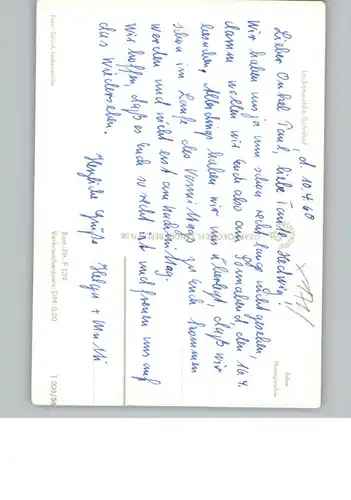 Luckenwalde, Bahnhof
d. 10.4.60
Lieber Onkel Paul, liebe Tante Hedwig!
Wir haben uns ja nun schon recht lang nicht gesehen,
darum wollen wir Euch also am Sonnabend den 16.4.
besuchen. Allerdings haben wir uns überlegt daß wir
schon im Laufe des Vormittags zu Euch kommen
werden und nicht erst am Nachmittag.
Wir hoffen, daß es Euch so recht ist und freuen uns auf
das Wiedersehen.
Herzliche Grüße Helga + Mutti
Echte
Photographie
Best.-Nr. F 139
Verbraucherpreis: DM 0,20
T 200/56